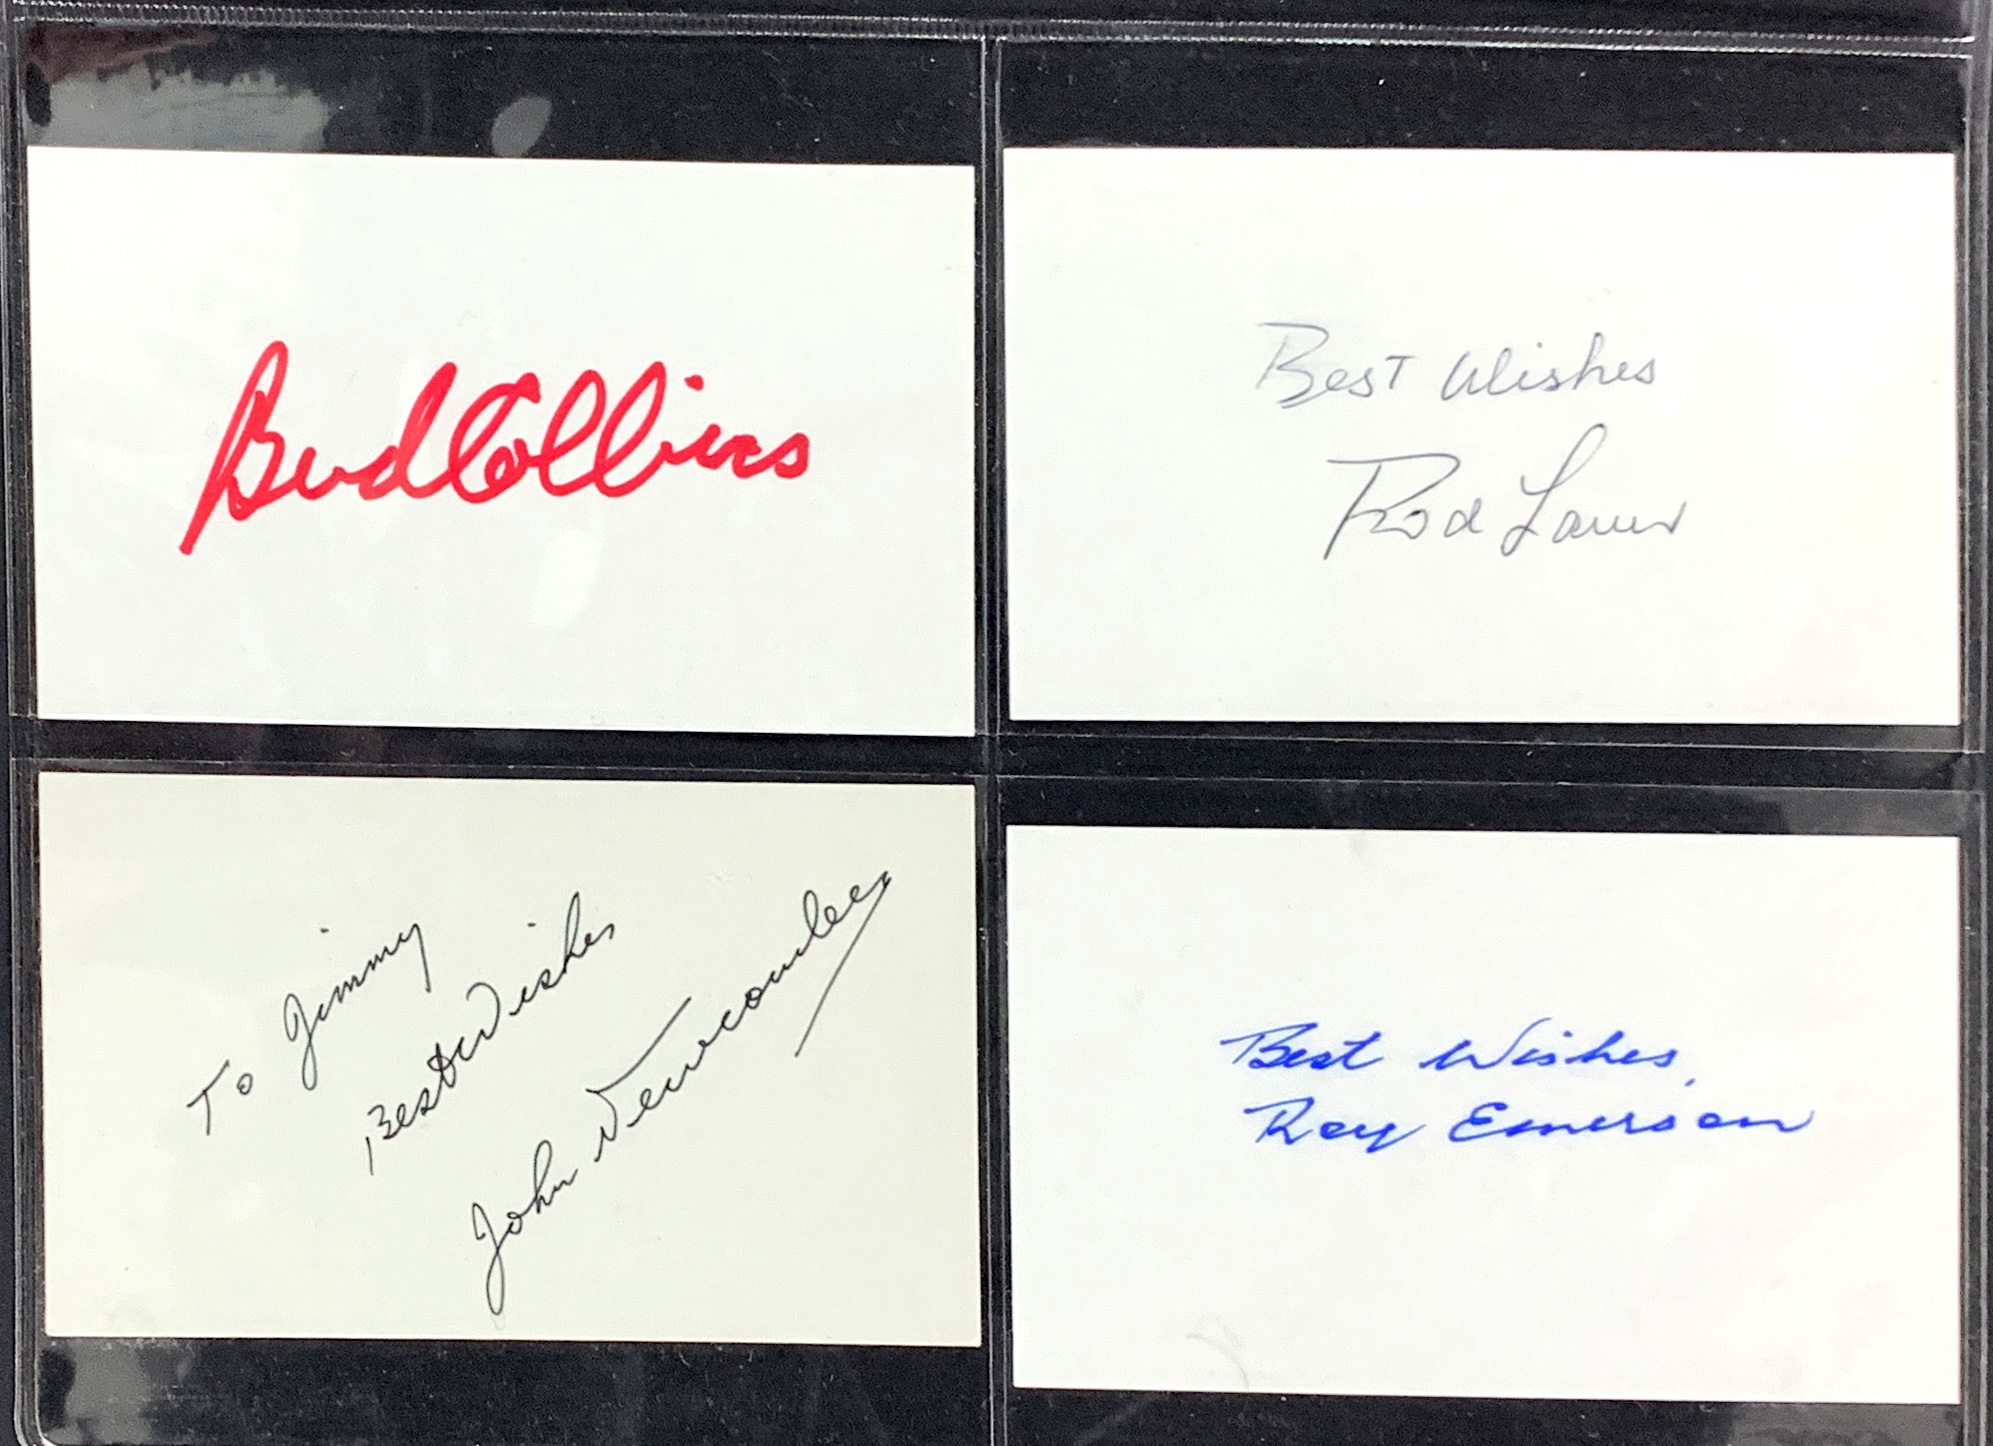 Bud Collins
Best Wishes
Rod Laver
To Jimmy
Best Wishes
John Newcombe
Best Wishes,
Roy Emerson